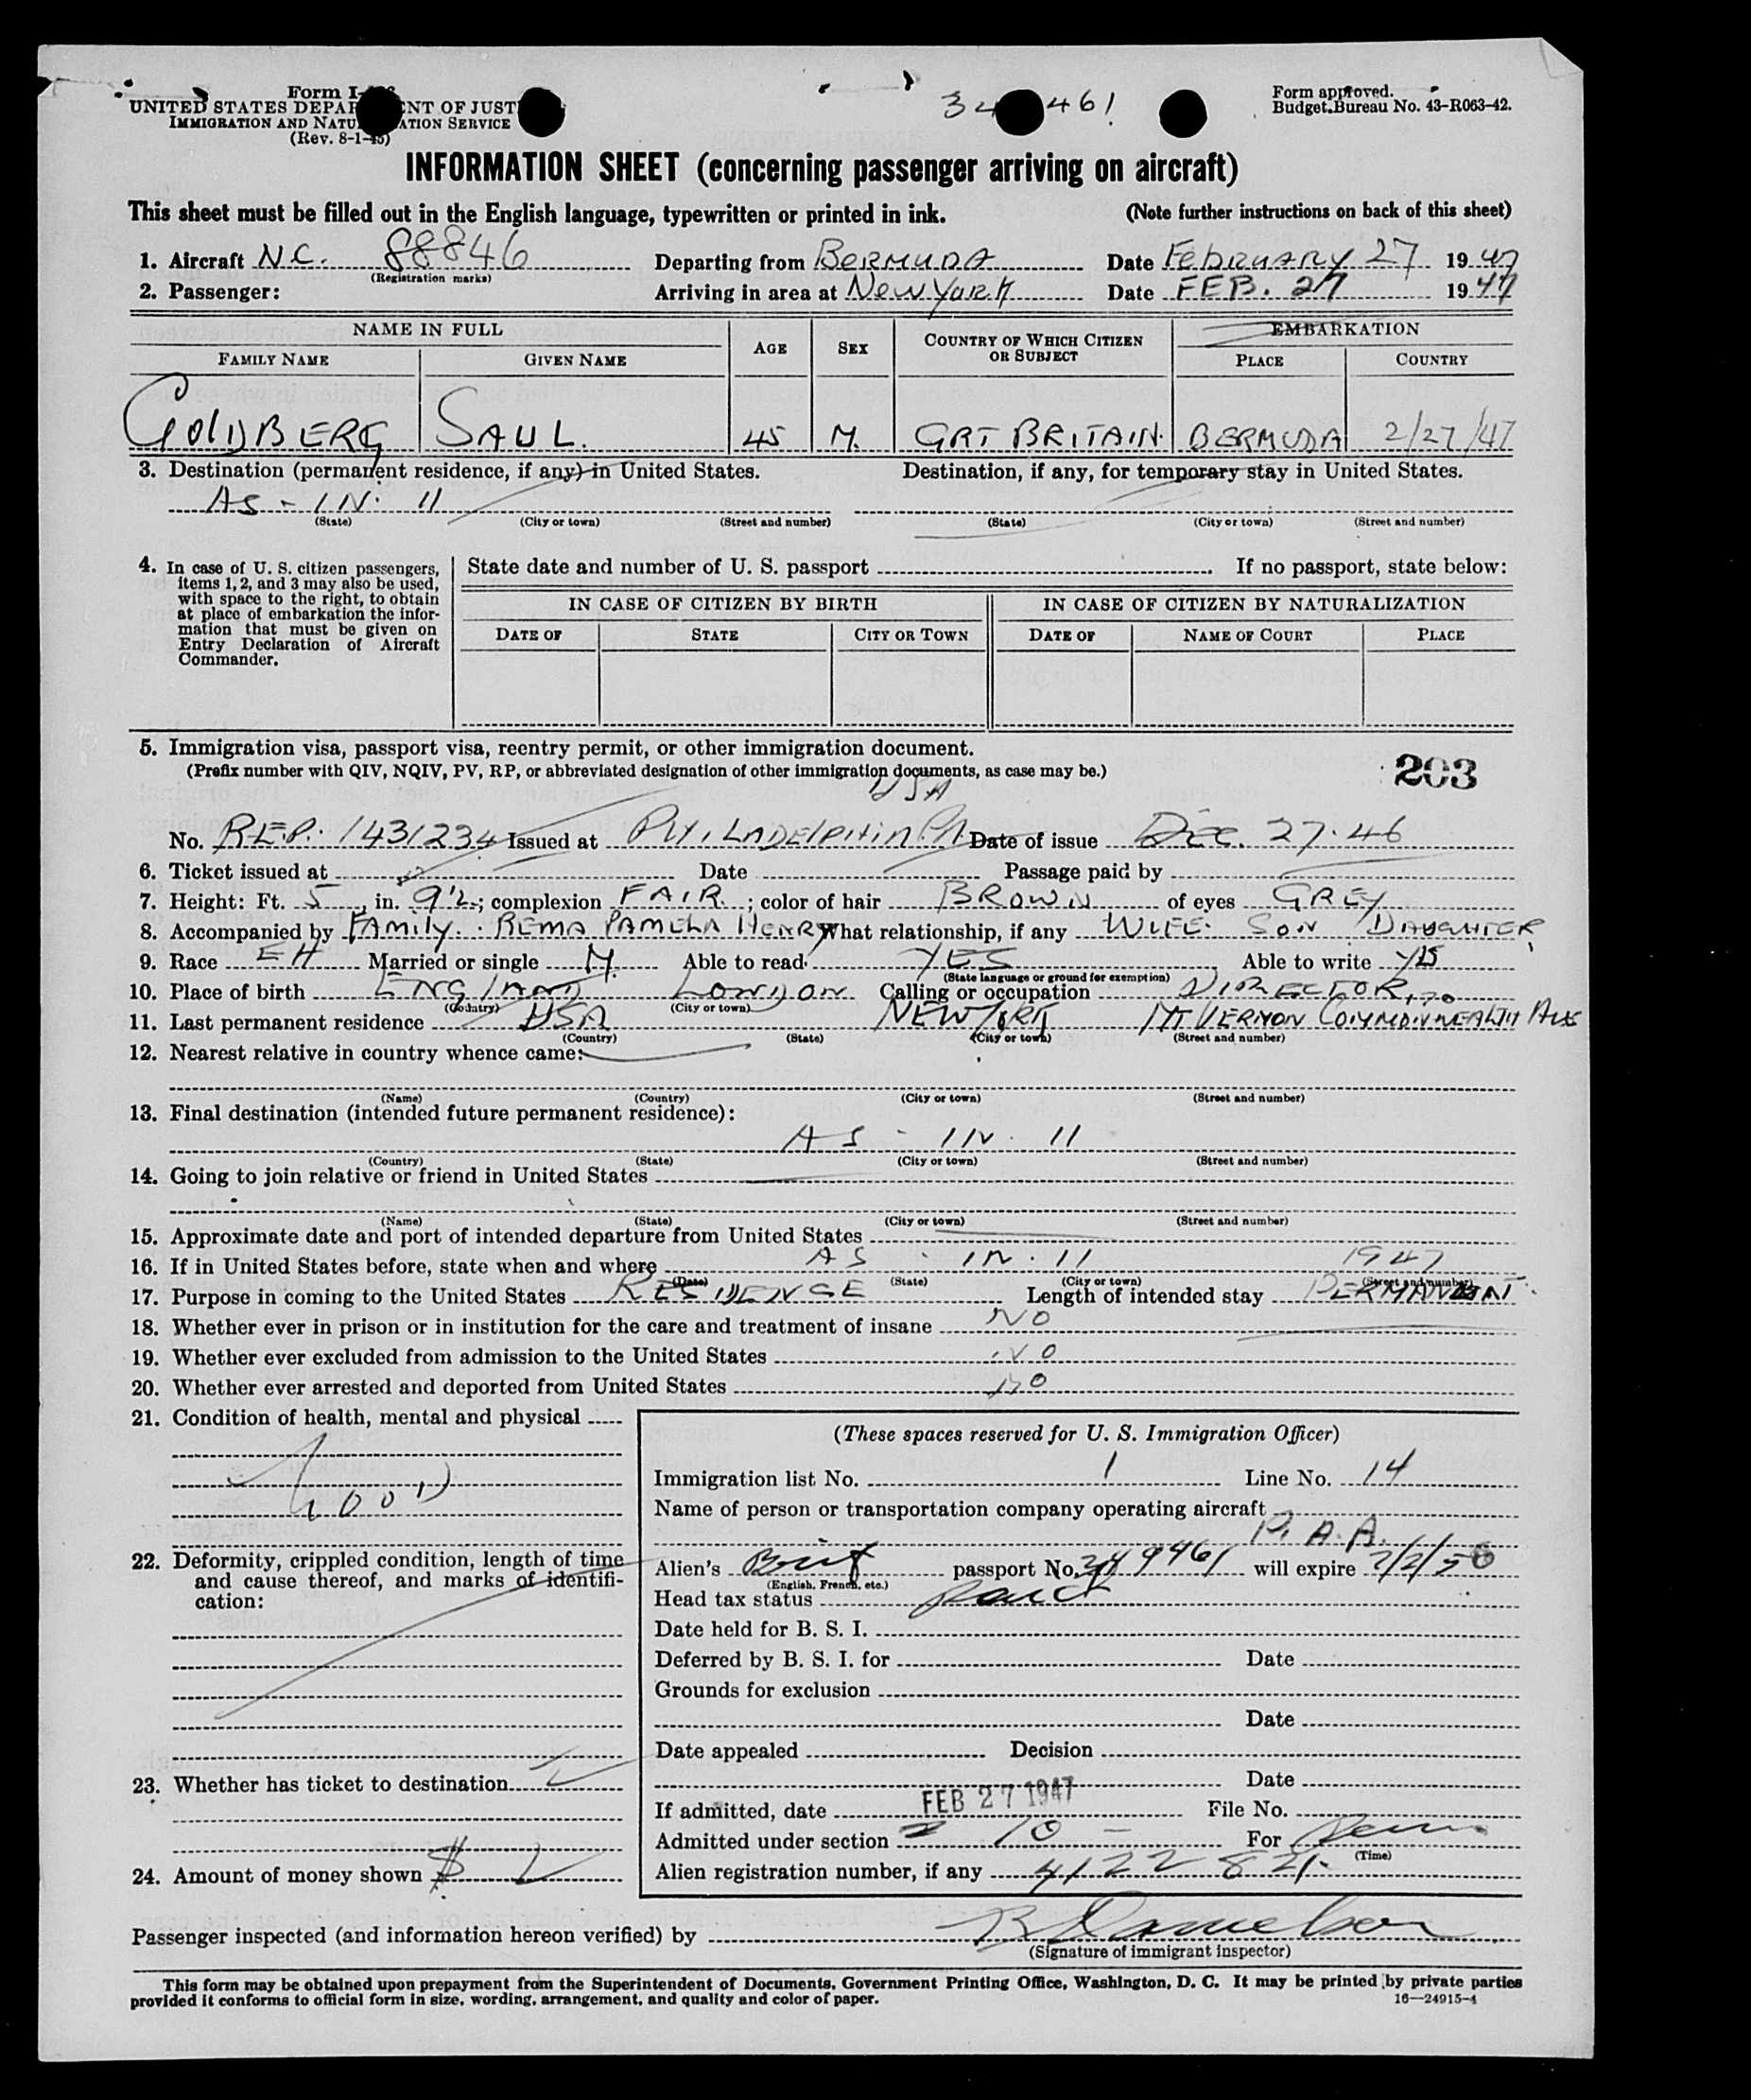 Form I-
UNITED STATES DEPAR NT OF JUST
IMMIGRATION AND NATU ATION SERVICE
(Rev. 8-1-45)
34 461
Form approved.
Budget Bureau No. 43-R063-42.
INFORMATION SHEET (concerning passenger arriving on aircraft)
This sheet must be filled out in the English language, typewritten or printed in ink. (Note further instructions on back of this sheet)
1. Aircraft N.C. 88846 Departing from BERMUDA Date FEBRUARY 27 1947
(Registration marks)
2. Passenger: Arriving in area at NEW YORK Date FEB. 27 1947
NAME IN FULL AGE SEX COUNTRY OF WHICH CITIZEN OR SUBJECT EMBARKATION
FAMILY NAME GIVEN NAME PLACE COUNTRY
GOLDBERG SAUL. 45 M. GRT BRITAIN. BERMUDA 2/27/47
3. Destination (permanent residence, if any) in United States. Destination, if any, for temporary stay in United States.
AS - IN. 11
(State) (City or town) (Street and number) (State) (City or town) (Street and number)
4. In case of U. S. citizen passengers, items 1, 2, and 3 may also be used, with space to the right, to obtain at place of embarkation the information that must be given on Entry Declaration of Aircraft Commander.
State date and number of U. S. passport If no passport, state below:
IN CASE OF CITIZEN BY BIRTH IN CASE OF CITIZEN BY NATURALIZATION
DATE OF STATE CITY OR TOWN DATE OF NAME OF COURT PLACE
5. Immigration visa, passport visa, reentry permit, or other immigration document.
(Prefix number with QIV, NQIV, PV, RP, or abbreviated designation of other immigration documents, as case may be.)
203
USA
No. R.E.P. 1431234 Issued at PHILADELPHIA PA. Date of issue DEC. 27. 46
6. Ticket issued at Date Passage paid by
7. Height: Ft. 5 in. 9½; complexion FAIR.; color of hair BROWN of eyes GREY
8. Accompanied by FAMILY. REMA PAMELA HENRY What relationship, if any WIFE. SON DAUGHTER
9. Race EH Married or single M. Able to read YES Able to write YES
(State language or ground for exemption)
10. Place of birth ENGLAND LONDON Calling or occupation DIRECTOR.
(Country) (City or town)
11. Last permanent residence USA NEW YORK MT VERNON COMMONWEALTH AVE
(Country) (State) (City or town) (Street and number)
12. Nearest relative in country whence came:
(Name) (Country) (City or town) (Street and number)
13. Final destination (intended future permanent residence):
AS - IN. 11
(Country) (State) (City or town) (Street and number)
14. Going to join relative or friend in United States
(Name) (State) (City or town) (Street and number)
15. Approximate date and port of intended departure from United States
16. If in United States before, state when and where AS - IN. 11 1947
(Date) (State) (City or town) (Street and number)
17. Purpose in coming to the United States RESIDENCE Length of intended stay PERMANENT.
18. Whether ever in prison or in institution for the care and treatment of insane NO
19. Whether ever excluded from admission to the United States NO
20. Whether ever arrested and deported from United States NO
21. Condition of health, mental and physical
GOOD
22. Deformity, crippled condition, length of time and cause thereof, and marks of identification:
23. Whether has ticket to destination
24. Amount of money shown $
(These spaces reserved for U. S. Immigration Officer)
Immigration list No. 1 Line No. 14
Name of person or transportation company operating aircraft
P. A. A.
Alien's Brit passport No. 349461 will expire 2/2/50
(English, French, etc.)
Head tax status paid
Date held for B. S. I.
Deferred by B. S. I. for Date
Grounds for exclusion
Date
Date appealed Decision
Date
If admitted, date FEB 27 1947 File No.
Admitted under section 10 For Perm
(Time)
Alien registration number, if any 4122821
Passenger inspected (and information hereon verified) by
(Signature of immigrant inspector)
This form may be obtained upon prepayment from the Superintendent of Documents, Government Printing Office, Washington, D. C. It may be printed by private parties
provided it conforms to official form in size, wording, arrangement, and quality and color of paper. 16—24915-4